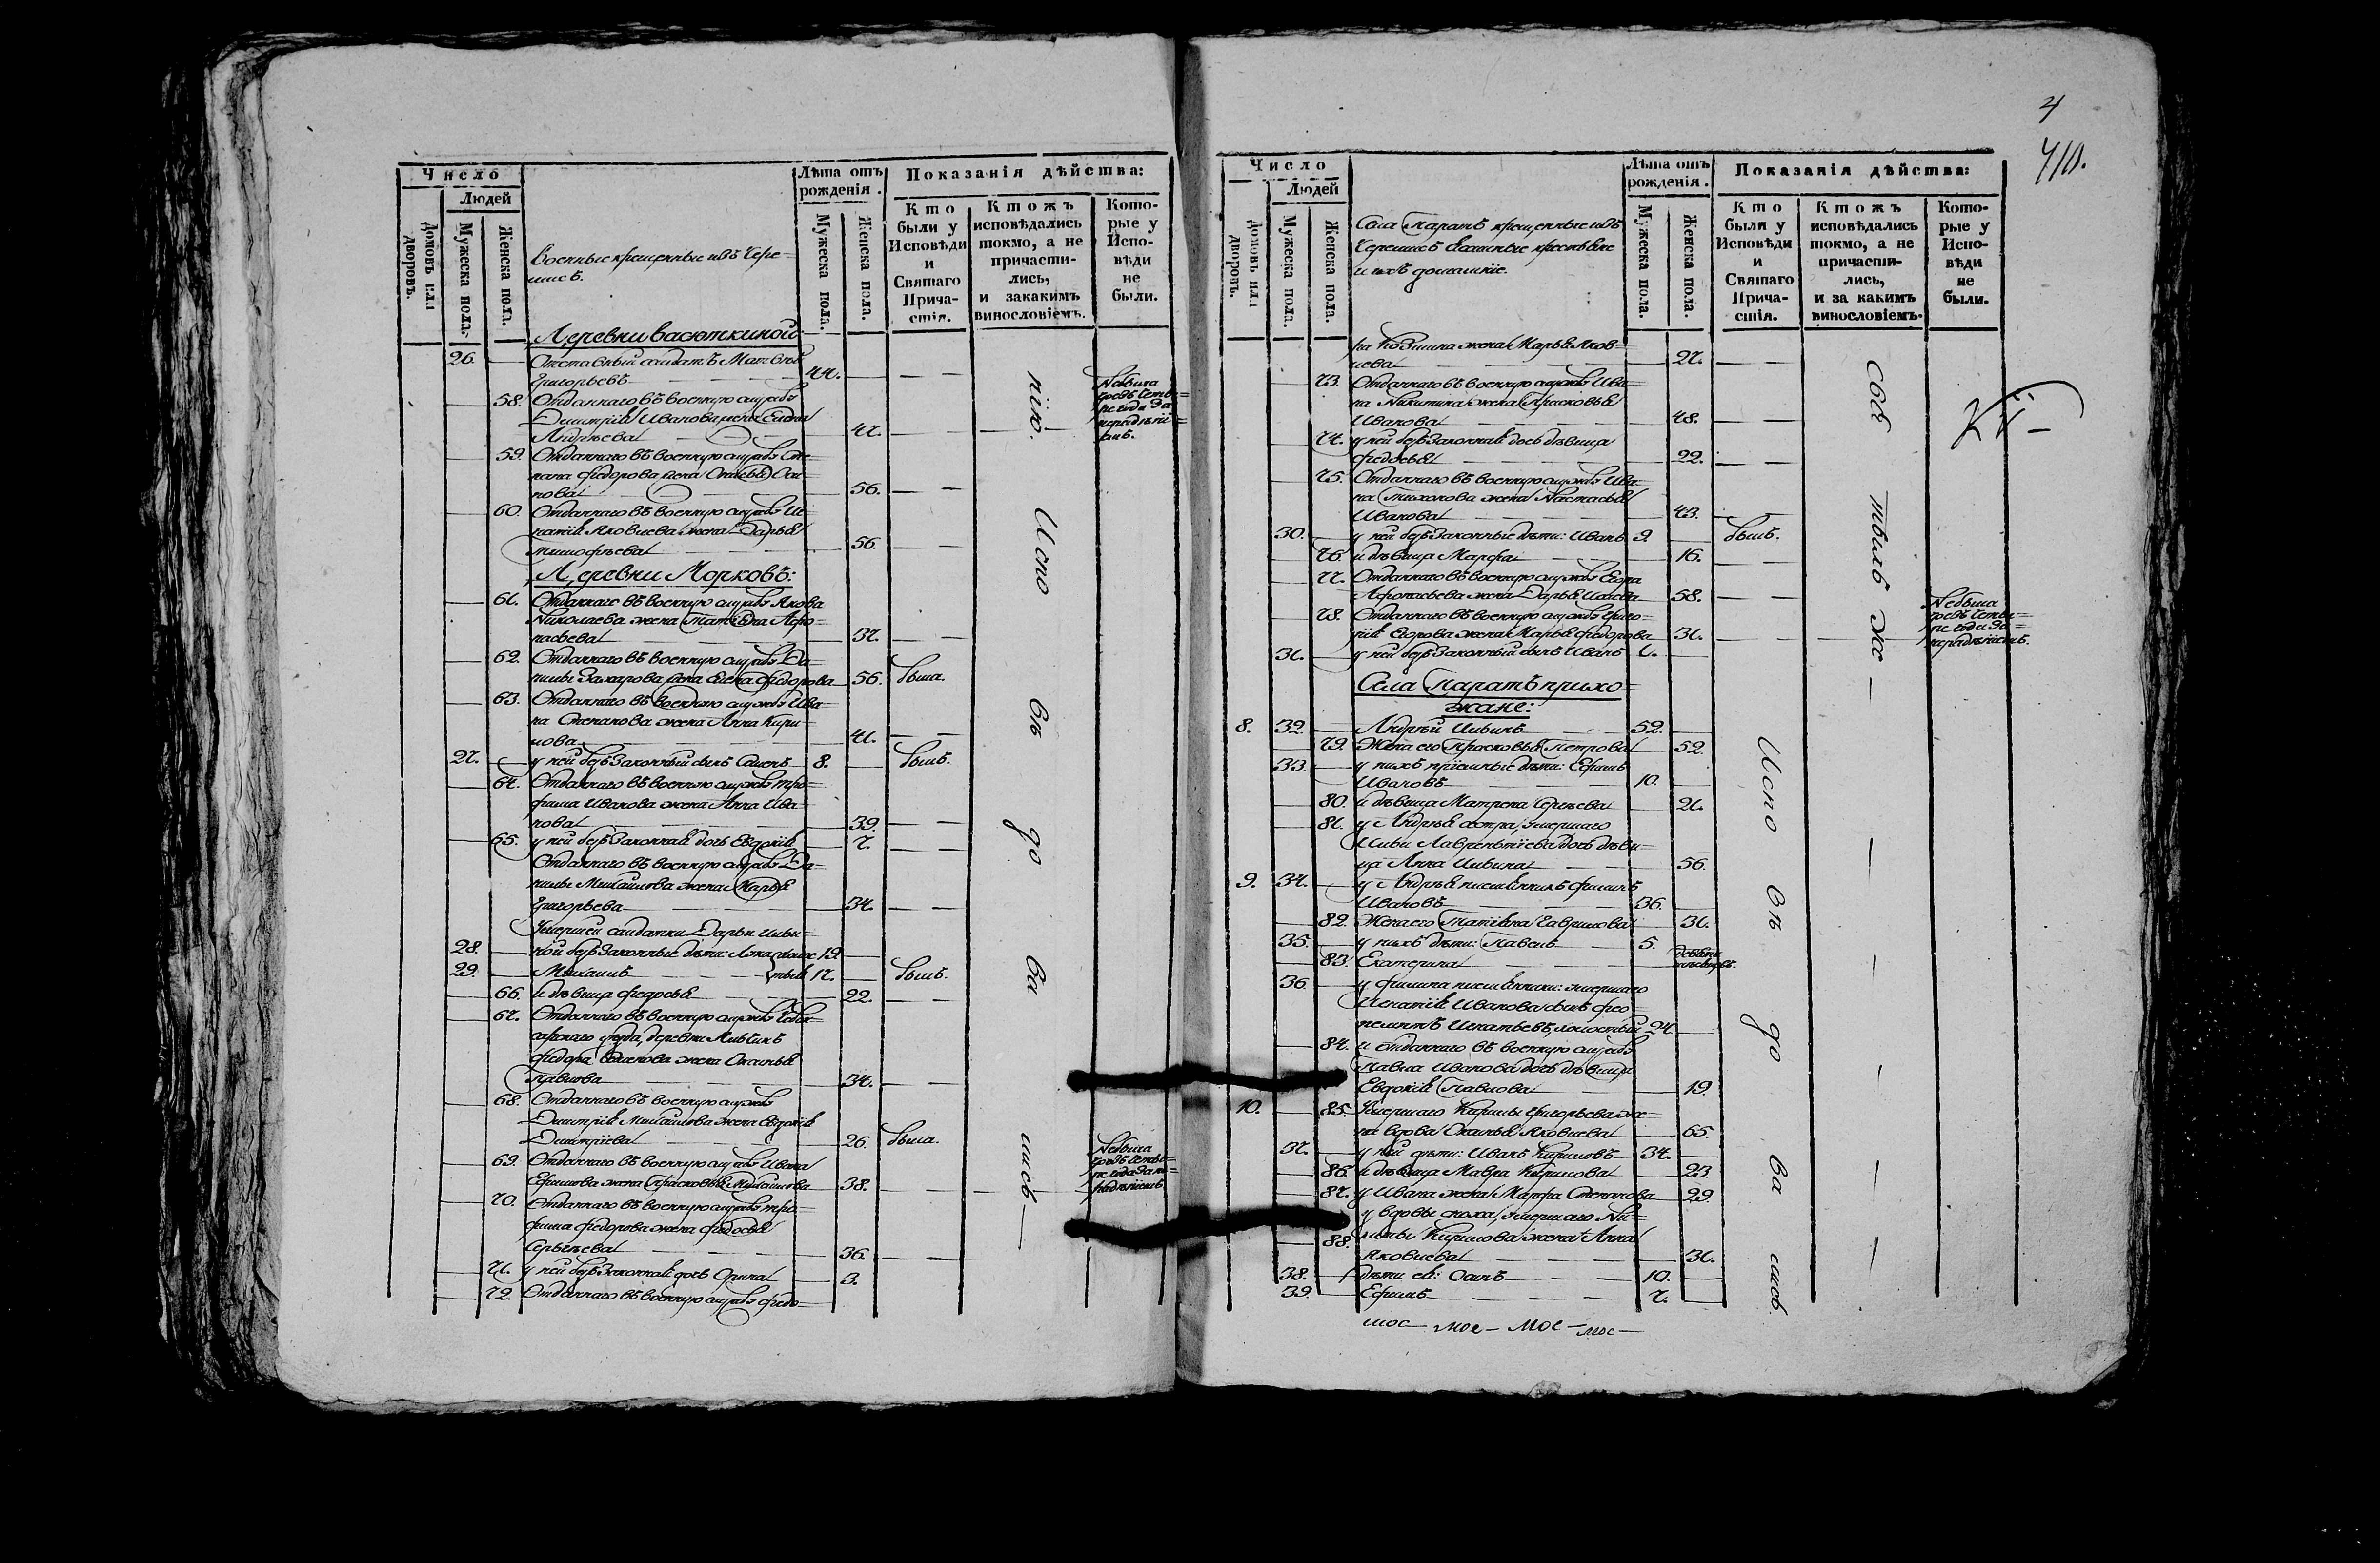 Число
Людей
Домовъ или дворовъ.
Мужеска пола.
Женска пола.
Военные крещенные изъ Чере=
мисъ.
Лѣта отъ
рожденія.
Мужеска пола.
Женска пола.
Показанія дѣйства:
Кто
были у
Исповѣди
и
Святаго
Прича-
стія.
Ктожъ
исповѣдались
токмо, а не
причасти-
лись,
и закакимъ
винословіемъ.
Кото-
рые у
Испо-
вѣди
не
были.
Деревни Васюткиной
26. Отставный салдатъ Матвѣй
Григорьевъ 44.
58. Отданнаго въ военную службу
Димитрія Иванова жена Елена
Андрѣева 47.
Небыла
59. Отданнаго въ военную службу Сте=
пана Федорова жена Оси=
пова 56.
60. Отданнаго въ военную службу Иг
натія Яковлева жена Дарья
Тимофѣева 56.
Деревни Морковъ:
61. Отданнаго въ военную службу Якова
Николаева жена Татіяна Афо=
насьева 37.
62. Отданнаго въ военную службу Да=
нилы Захарова жена Елена Федорова 56. была.
63. Отданнаго въ военную службу Ива=
на Степанова жена Анна Кири=
лова 41.
27. у ней беззаконный сынъ Семенъ 8. былъ.
64. Отданнаго въ военную службу Тро=
фима Иванова жена Анна Ива=
нова 39.
65. у ней беззаконная дочь Евдокія 7.
Отданнаго въ военную службу Да=
нилы Михайлова жена Марья
Григорьева 34.
Умершей салдатки Дарьи Ильи=
28. ной беззаконные дѣти: Лука 19.
29. Михаилъ 17. былъ.
66. и дѣвица Федосья 22.
67. Отданнаго въ военную службу Чебок=
сарскаго уѣзда, деревни
Федора жена Оксинья
Павлова 34.
68. Отданнаго въ военную службу
Димитрія Михайлова жена Евдокія
Димитріева 26. была.
69. Отданнаго въ военную службу Ивана
Ефимова жена Прасковья Михайлова 38.
Небыла
70. Отданнаго въ военную службу Тро=
фима Федорова жена Федосья
Сергѣева 36.
71. у ней беззаконная дочь Орина 3.
72. Отданнаго въ военную службу Федо
нію. Испо вѣ до ва лись
4
410.
Число
Людей
Домовъ или дворовъ.
Мужеска пола.
Женска пола.
Села Паратъ крещенные изъ
Черемисъ Ясашные крестьяне
и ихъ домашніе.
Лѣта отъ
рожденія.
Мужеска пола.
Женска пола.
Показанія дѣйства:
Кто
были у
Исповѣди
и
Святаго
Прича-
стія.
Ктожъ
исповѣдались
токмо, а не
причасти-
лись,
и за какимъ
винословіемъ.
Кото-
рые у
Испо-
вѣди
не
были.
ра Козмина жена Марья Яков=
лева 27.
73. Отданнаго въ военную службу Ива=
на Никитина жена Прасковья
Иванова 48.
74. у ней беззаконная дочь дѣвица
Федосья 22.
75. Отданнаго въ военную службу Ива=
на Тихонова жена Настасья
Иванова 43.
30. у ней беззаконные дѣти: Иванъ 9. былъ.
76. и дѣвица Марфа 16.
77. Отданнаго въ военную службу Егора
Афонасьева жена Дарья Исаева 58.
78. Отданнаго въ военную службу Григо=
рія Егорова жена Марья Федорова 31.
Небыла
31. у ней беззаконный сынъ Иванъ 1.
Села Паратъ прихо=
жане:
8. 32. Андрей Ильинъ 52.
79. Жена его Прасковья Петрова 52.
33. у нихъ пріемные дѣти: Ефимъ
Ивановъ 10.
80. и дѣвица Матрена Сергѣева 21.
81. у Андрея сестра, умершаго
Ильи Лаврентьева дочь дѣви=
ца Анна Ильина 56.
9. 34. у Андрея племянникъ Филипъ
Ивановъ 36.
82. Жена его Татіяна Гаврилова 31.
35. у нихъ дѣти: Павелъ 5.
83. Екатерина
36. у Филипа племянники: умершаго
Игнатія Иванова сынъ Фео=
пемптъ Игнатьевъ, холостый 24.
84. и отданнаго въ военную службу
Павла Иванова дочь дѣвица
Евдокія Павлова 19.
10. 85. Умершаго Кирилы Григорьева же=
на вдова Оксинья Яковлева 65.
37. у ней дѣти: Иванъ Кириловъ 34.
86. и дѣвица Мавра Кирилова 23.
87. у Ивана жена Марфа Степанова 29.
у вдовы сноха, умершаго Ни=
88. киты Кирилова жена Анна
Яковлева 31.
38. дѣти ея: Осипъ 10.
39. Ефимъ 7.
Испо вѣ до ва лись